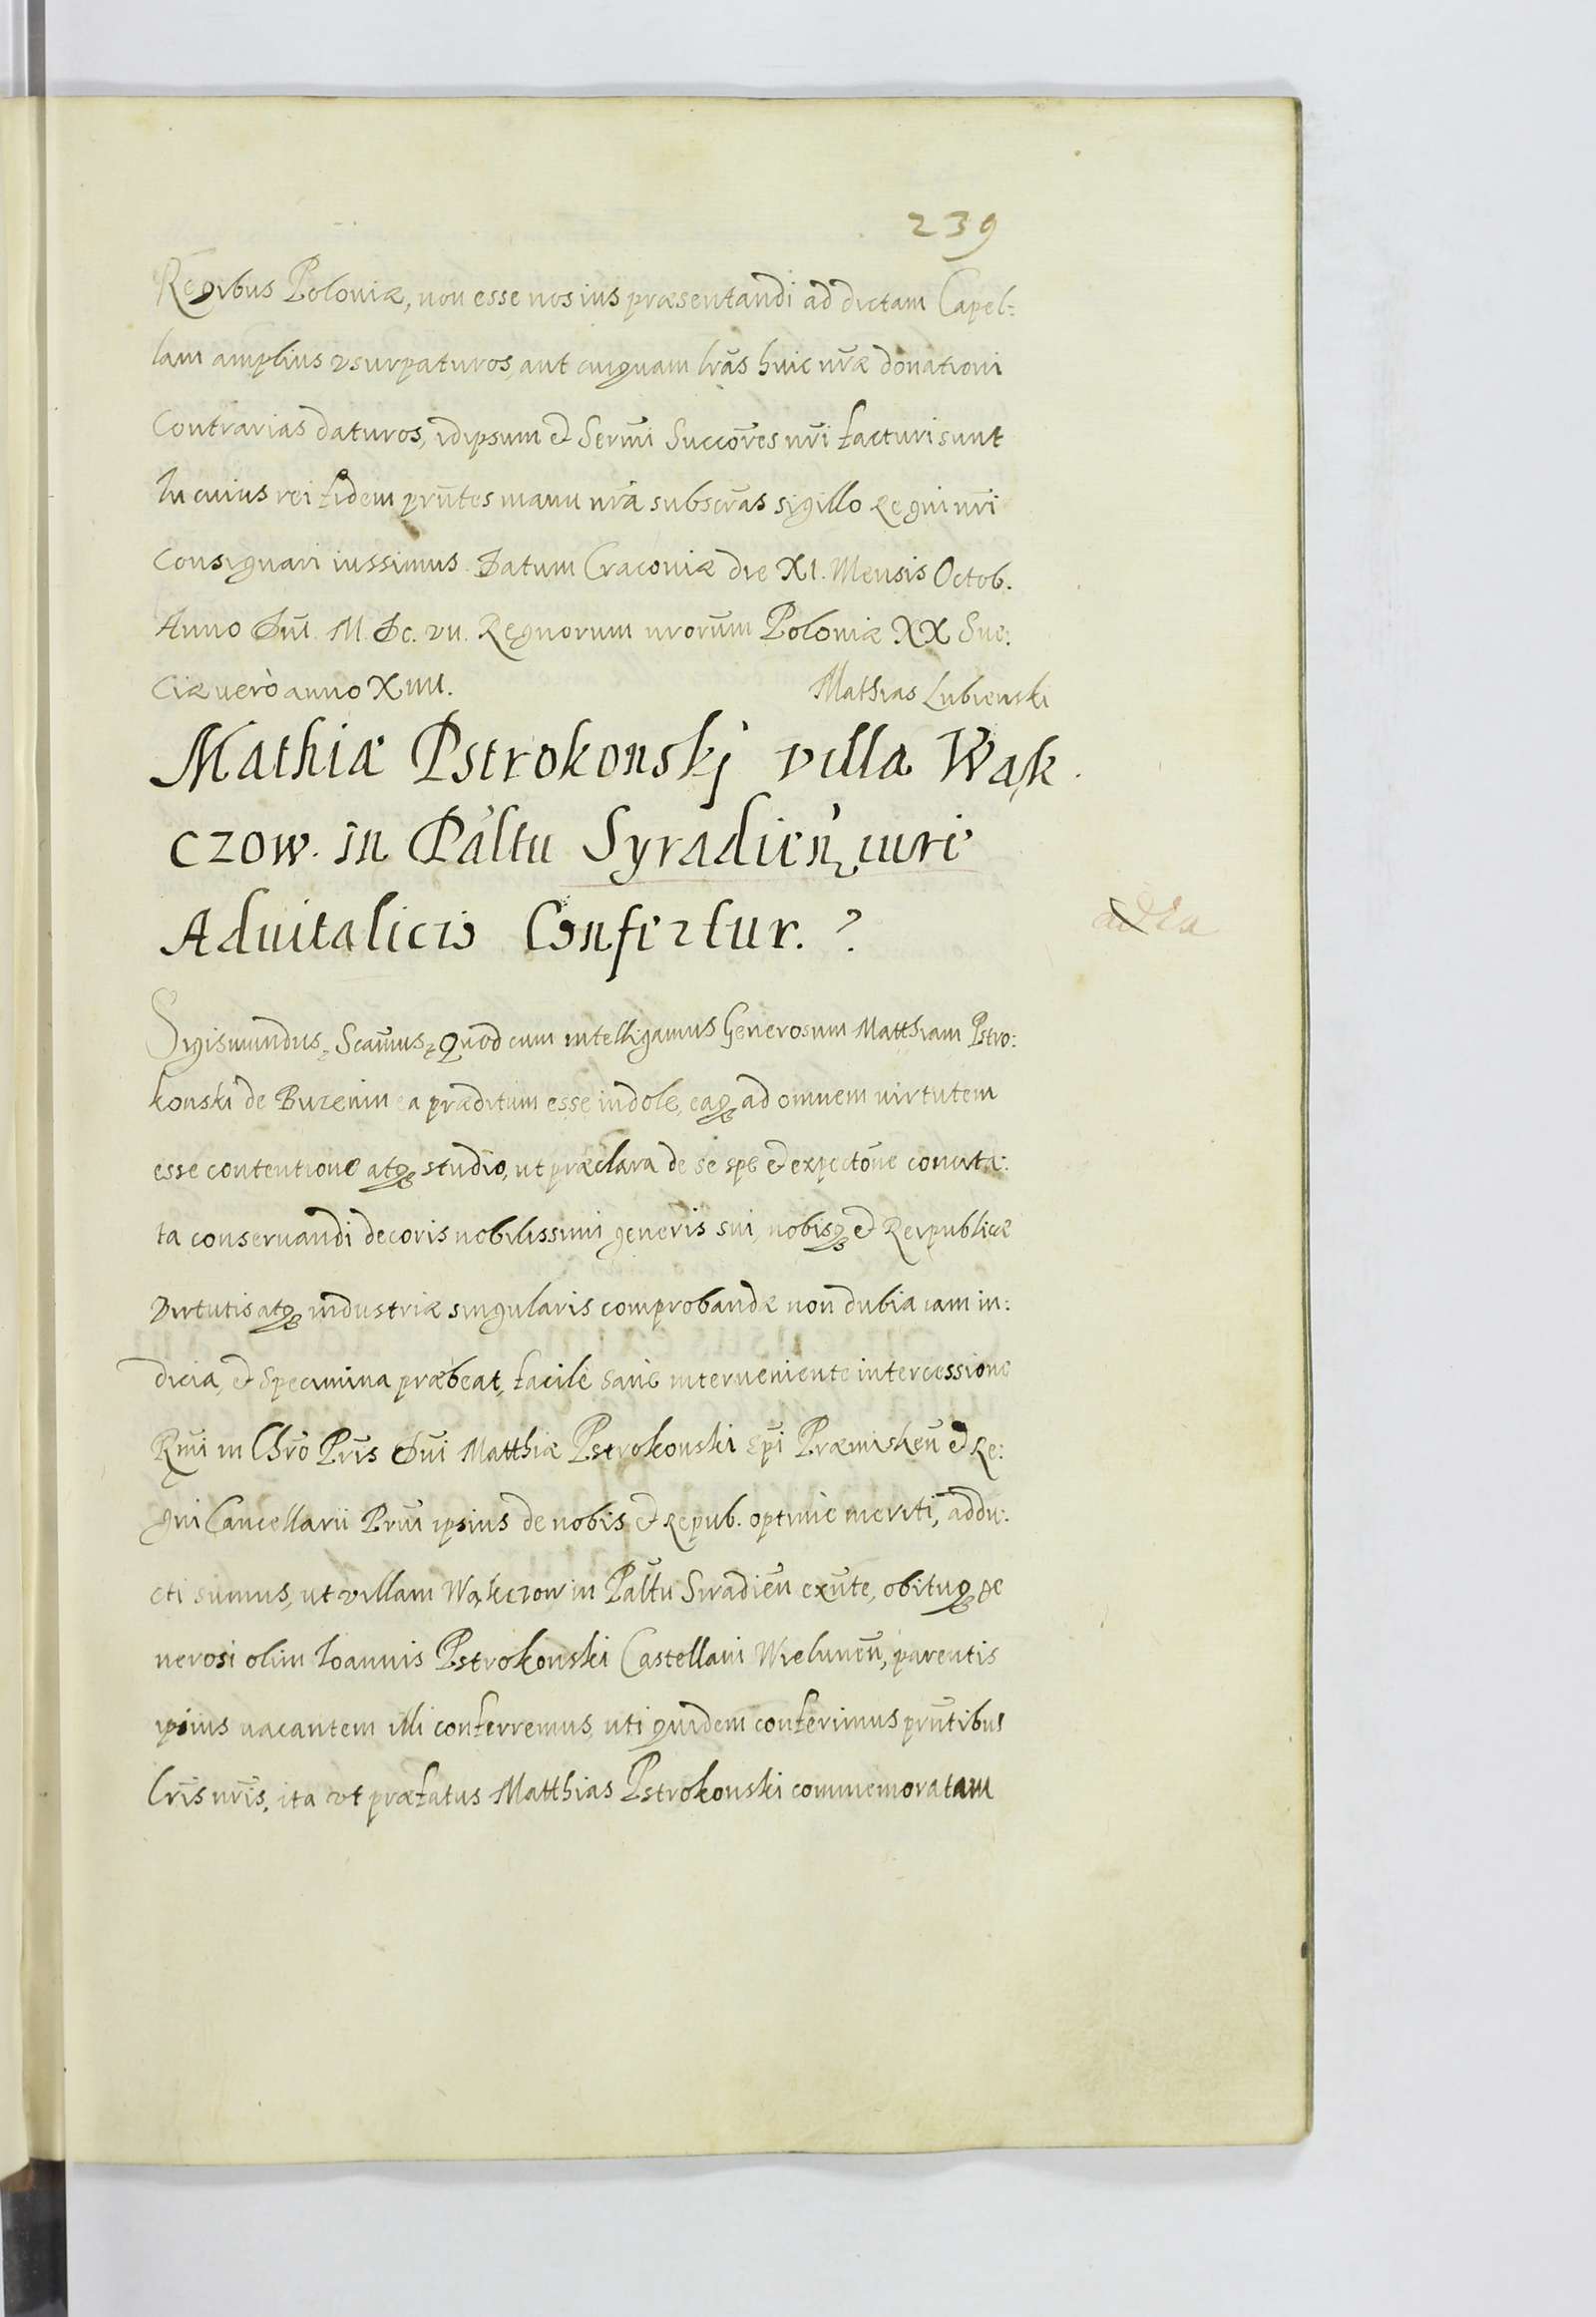 239
Regibus Poloniæ, non esse nos ius præsentandi ad dictam Capel:
lam amplius vsurpaturos, aut cuiquam lr̃as huic nr̃æ donationi
Contrarias daturos, idipsum et Sermi Succor̃es nr̃i facturi sunt
In cuius rei fidem prñtes manu nr̃a subscr̃as sigillo Regni nr̃i
Consignari iussimus. Datum Cracoviæ die XI. Mensis Octob.
Anno Dñi. M. Dc. vii. Regnorum nrorum Poloniæ XX Sue:
ciæ verò anno XIIII.
Mathias Lubienski
Mathiæ Pstrokonskj villa Wąk
czow. in Pãltu Syradień iure
Aduitalicio Confertur.
Sigismundus, Scamus, Quod cum intelligamus Generosum Matthiam Pstro:
konski de Buzenin ea præditum esse indole, eaqꝫ ad omnem virtutem
esse contentione atqꝫ studio, ut præclara de se spe et expectõne concita:
ta conseruandi decoris nobilissimi generis sui, nobisqꝫ et Reipublicæ
Virtutis atqꝫ industriæ singularis comprobandæ non dubia iam in:
dicia, et specimina præbeat, facilè sanè interueniente intercessione
Rmi in Chrõ Pr̃is Dñi Matthiæ Pstrokonski Epĩ Præmisleñ et Re:
gni Cancellarii Prui ipsius de nobis et Repub. optimè meriti, addu:
cti sumus, ut villam Wąkczow in Pãltu Siradieñ exñte, obituqꝫ ge
nerosi olim Ioannis Pstrokonski Castellani Wieluneñ, parentis
ipsius uacantem illi conferremus, uti quidem conferimus prñtibus
Lr̃is nr̃is, ita vt præfatus Matthias Pstrokonski commemoratam